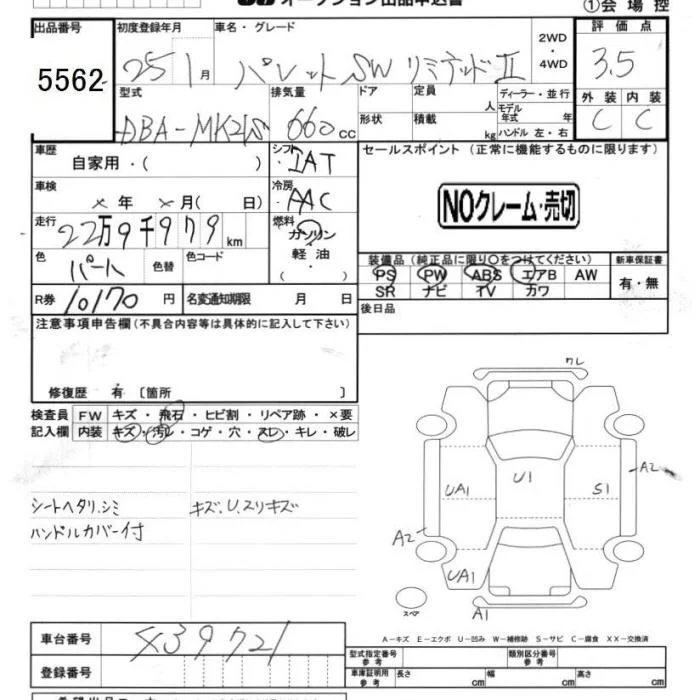 オークション出品申込書
①会場控
出品番号 初度登録年月 車名・グレード 2WD・4WD 評価点
5562 25 1月 パレットSW リミテッドⅡ 3.5
型式 排気量 ドア 定員 人 ディーラー・並行 外装 内装
DBA-MK21S 660cc 形状 積載 kg モデル年式 年 ハンドル 左・右 C C
車歴 自家用・( ) シフト IAT セールスポイント (正常に機能するものに限ります)
車検 × 年 × 月( 日) 冷房 AAC
NOクレーム・売切
走行 22万9千979km 燃料 ガソリン
軽油
・( )
色 パール 色替 色コード
装備品(純正品に限り○をつけてください) 新車保証書
PS PW ABS エアB AW 有・無
SR ナビ TV カワ
R券 10170円 名変通知期限 月 日 後日品
注意事項申告欄(不具合内容等は具体的に記入して下さい)
修復歴 有 〔箇所 〕
検査員 FW キズ・飛石・ヒビ割・リペア跡・×要
記入欄 内装 キズ・汚レ・コゲ・穴・スレ・キレ・破レ
シートヘタリ.シミ キズ.U.スリキズ
ハンドルカバー付
ワレ
A2
UA1 U1 S1
A2
UA1
スペア A1
A-キズ E-エクボ U-凹み W-補修跡 S-サビ C-腐食 XX-交換済
車台番号 439721
型式指定番号 参考 類別区分番号 参考
登録番号
車庫証明用 参考 長さ cm 幅 cm 高さ cm